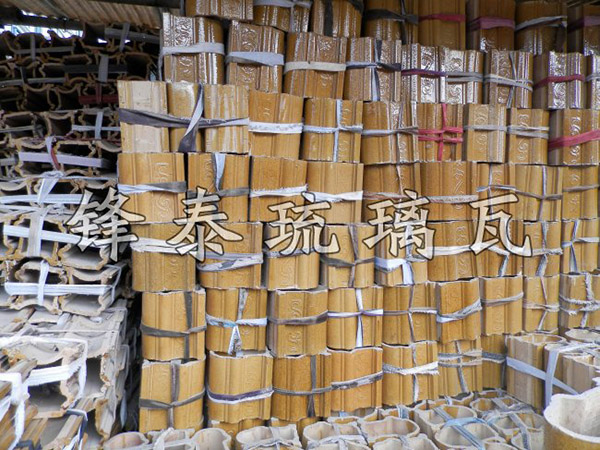 锋泰琉璃瓦